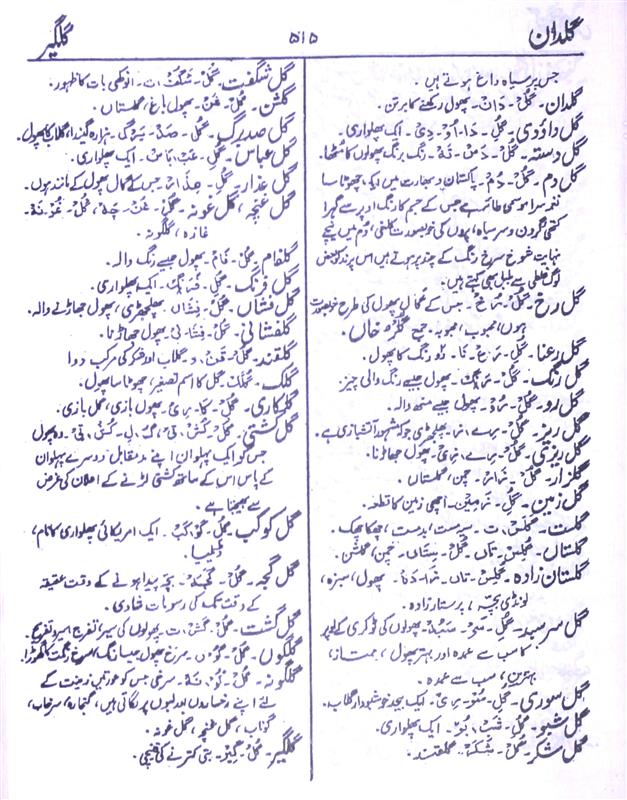 گلدان
۵۱۵
گلگیر
جس پر سیاہ داغ ہوتے ہیں
گلدان۔ گُل۔ دَان۔ پھول رکھنے کا برتن۔
گل داؤدی۔ گُل۔ دَا۔ اُوٗ۔ دِی۔ ایک پھلواری۔
گل دستہ۔ گُل۔ دَس۔ تَہ۔ رنگ برنگ پھولوں کا مٹھا۔
گل دم۔ گُل۔ دُم۔ پاکستان و بھارت میں ایک چھوٹا سا
نغمہ سرا موسمی طائر ہے جس کے جسم کا رنگ اوپر سے گہرا
کتھئی گردن و سر سیاہ، پروں کی خوبصورت کلغی، دم میں نیچے
نہایت شوخ سرخ رنگ کے چند پر ہوتے ہیں اس پرند کو بعض
لوگ غلطی سے بلبل بھی کہتے ہیں۔
گل رخ۔ گُل۔ رُخ۔ جس کے گال پھول کی طرح خوبصورت
ہوں، محبوب، محبوبہ۔ جمع گلرخاں۔
گل رعنا۔ گُلِ۔ رَع۔ نَا۔ دو رنگ کا پھول۔
گل رنگ۔ گُل۔ رَنگ۔ پھول جیسے رنگ والی چیز
گل رو۔ گُل۔ رُوٗ۔ پھول جیسے منہ والہ۔
گل ریز۔ گُل۔ رے، ز۔ پھلجھڑی جو کہ مشہور آتشبازی ہے۔
گل ریزی۔ گُل۔ رے، زِی۔ پھول جھاڑنا۔
گلزار۔ گُل۔ زَار۔ چمن، گلستاں۔
گل زمین۔ گُلِ۔ زَمِین۔ اچھی زمین کا قطعہ۔
گلست۔ گُلَس، ت۔ سرمست، بدمست، چھکا چھک۔
گلستاں۔ گُلِس۔ تاں۔ گُل۔ سِتَاں۔ چمن، گلشن۔
گلستان زادہ۔ گُلِس۔ تاں۔ زَا۔ دَہ۔ پھول، سبزہ،
لونڈی بچہ، پرستار زادہ۔
گل سرسبد۔ گُلِ۔ سَرِ۔ سَبَد۔ پھولوں کی ٹوکری کے اوپر
کا سب سے عمدہ اور بہتر پھول، ممتاز،
بہترین، سب سے عمدہ۔
گل سوری۔ گُلِ۔ سُوٗ۔ رِی۔ ایک بیحد خوشبودار گلاب۔
گل شبو۔ گُلِ۔ شَبْ، بُو۔ ایک پھلواری۔
گل شکر۔ گُل۔ شَکَر۔ گلقند۔
گل شگفت۔ گُل۔ شگُفْ، ت۔ انوکھی بات کا ظہور۔
گلشن۔ گُل۔ شَن۔ پھول باغ، گلستاں۔
گل صدبرگ۔ گُلِ۔ صَد۔ بَرگ۔ ہزارہ گیندا، گلاب کا پھول۔
گل عباس۔ گُلِ۔ عَبْ، بَاس۔ ایک پھلواری۔
گل عذار۔ گُل۔ عِذَار۔ جس کے گال پھول کے مانند ہوں۔
گل غنچہ، گل غونہ۔ گُل۔ غُن۔ چَہ، گُل۔ غُوْ۔ نَہ۔
غازہ، گلگونہ۔
گلفام۔ گُل۔ فَام۔ پھول جیسے رنگ والہ۔
گل فرنگ۔ گُلِ۔ فَرَنگ۔ ایک پھلواری۔
گل فشاں۔ گُل۔ فِشَاں۔ پھلجھڑی، پھول جھاڑنے والہ۔
گلفشانی۔ گُل۔ فِشَا۔ نِی۔ پھول جھاڑنا۔
گلقند۔ گُل۔ قَن، د۔ گلاب اور شکر کی مرکب دوا
گلک۔ گُلَک۔ گل کا اسم تصغیر، چھوٹا سا پھول۔
گلکاری۔ گُل۔ کَا۔ رِی۔ پھول بازی، گل بازی۔
گل کشتی۔ گُل۔ کُش، تی، گُ، لِ۔ کُش، تی۔ وہ پھول
جس کو ایک پہلوان اپنے مدمقابل دوسرے پہلوان
کے پاس اس کے ساتھ کشتی لڑنے کے اعلان کی غرض
سے بھیجتا ہے۔
گل کوکب۔ گُلِ۔ کَوْکَبْ۔ ایک امریکائی پھلواری کا نام،
ڈیلیا۔
گل گجہ۔ گُل۔ بچہ پیدا ہونے کے وقت عقیقہ
کے وقت تک کی رسومات شادی۔
گل گشت۔ گُل۔ گَش، ت۔ پھولوں کی سیر، تفرج، سیر و تفریح۔
گلگوں۔ گُل۔ گُوٗں۔ سرخ پھول جیسا رنگ، سرخ رنگت کا گھوڑا
گلگونہ۔ گُل۔ گُوٗ۔ نَہ۔ سرخی جس کو عورتیں زینت کے
لئے اپنے رخساروں اور لبوں پر لگاتی ہیں، گلنارہ، سرخاب،
گوناب، گل غنچہ، گل غونہ۔
گلگیر۔ گُل۔ گِیر۔ بتی کترنے کی قینچی۔